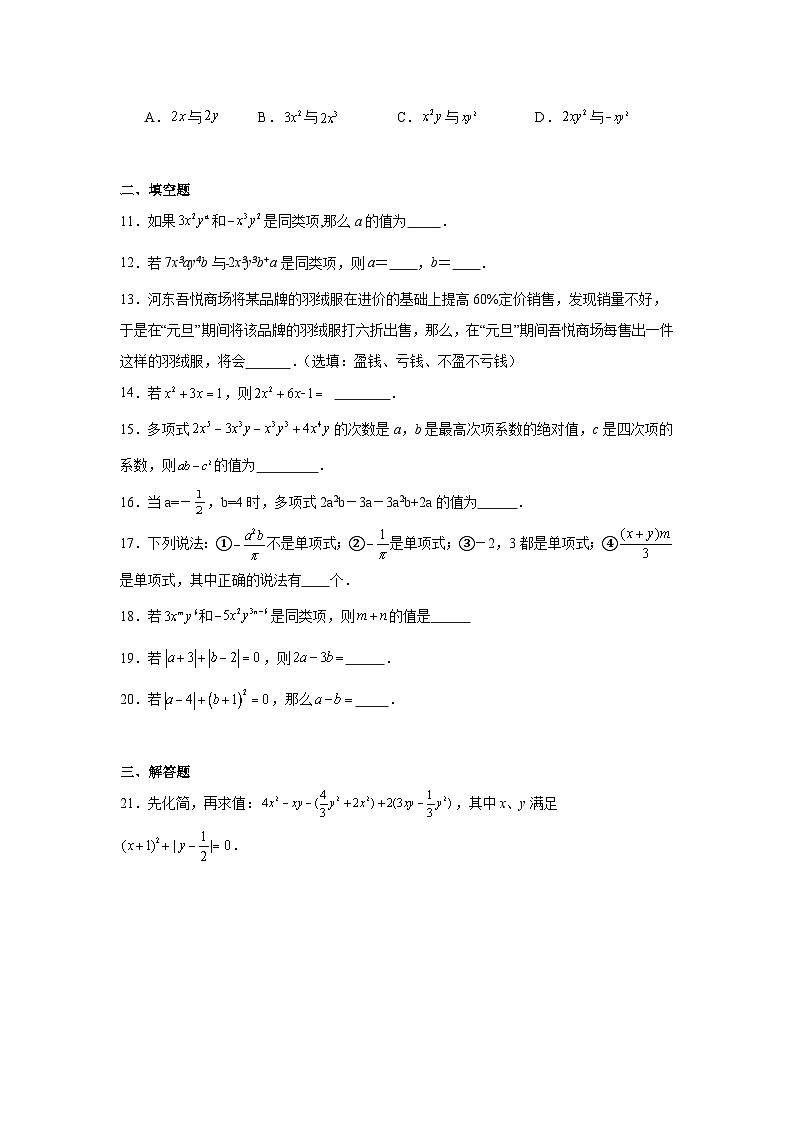 A．2x与2y B．3x²与2x³ C．x²y与xy² D．2xy²与−xy²
二、填空题
11．如果3x²yᵃ和−x³y²是同类项,那么a的值为_____．
12．若7x³ay⁴b与-2x³y³b⁺a是同类项，则a＝____，b＝____．
13．河东吾悦商场将某品牌的羽绒服在进价的基础上提高60%定价销售，发现销量不好，
于是在“元旦”期间将该品牌的羽绒服打六折出售，那么，在“元旦”期间吾悦商场每售出一件
这样的羽绒服，将会_______．（选填：盈钱、亏钱、不盈不亏钱）
14．若x²+3x=1，则2x²+6x-1= ________．
15．多项式2x⁵−3x³y−x³y³+4x⁴y的次数是a，b是最高次项系数的绝对值，c是四次项的
系数，则ab−c²的值为_________．
16．当a=－1/2，b=4时，多项式2a²b－3a－3a²b+2a的值为______．
17．下列说法：①−a²b/π不是单项式；②−1/π是单项式；③－2，3都是单项式；④(x+y)m/3
是单项式，其中正确的说法有____个．
18．若3xᵐy⁶和−5x²y³ⁿ⁻⁶是同类项，则m+n的值是______
19．若|a+3|+|b−2|=0，则2a−3b=______．
20．若|a−4|+(b+1)²=0，那么a−b=_____．
三、解答题
21．先化简，再求值：4x²−xy−(4/3y²+2x²)+2(3xy−1/3y²)，其中x、y满足
(x+1)²+|y−1/2|=0．